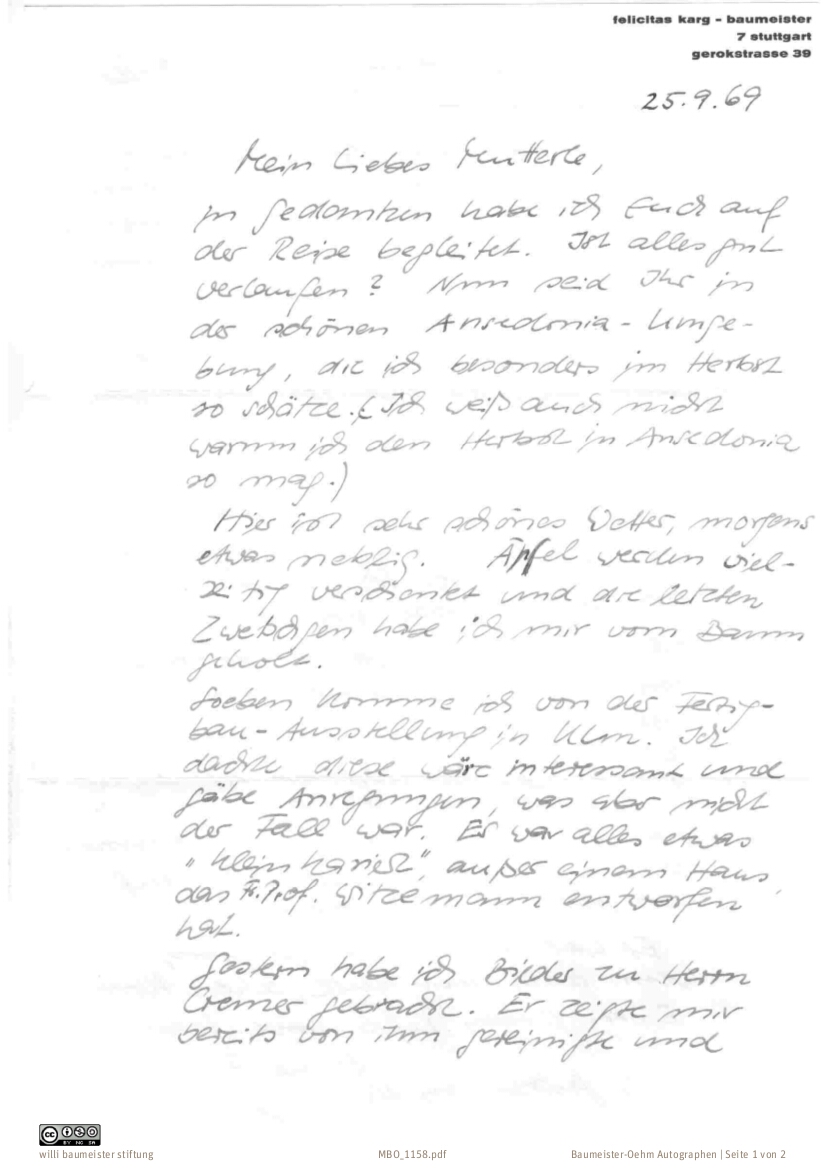 felicitas karg - baumeister
7 stuttgart
gerokstrasse 39
25.9.69
Mein liebes Mutterle,
in Gedanken habe ich Euch auf
der Reise begleitet. Ist alles gut
verlaufen? Nun seid Ihr in
der schönen Ansedonia-Umge-
bung, die ich besonders im Herbst
so schätze. (Ich weiß auch nicht
warum ich den Herbst in Ansedonia
so mag.)
Hier ist sehr schönes Wetter, morgens
etwas neblig. Äpfel werden viel-
verschenkt und die letzten
Zwetschgen habe ich mir vom Baum
geholt.
Soeben komme ich von der Fertig-
bau-Ausstellung in Ulm. Ich
dachte diese wäre interessant und
gäbe Anregungen, was aber nicht
der Fall war. Es war alles etwas
"kleinkariert", außer einem Haus,
das Fr. Prof. Witzemann entworfen
hat.
Gestern habe ich Bilder zu Herrn
Cremer gebracht. Er zeigte mir
bereits von ihm gereinigte und
CC BY NC SA
willi baumeister stiftung
MBO_1158.pdf
Baumeister-Oehm Autographen | Seite 1 von 2